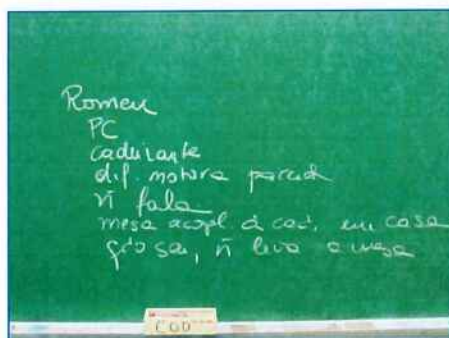 Romeu
PC
cadeirante
dif. motora
ñ fala
mesa acopl à cad. em casa
sai, ñ leva a mesa
COD